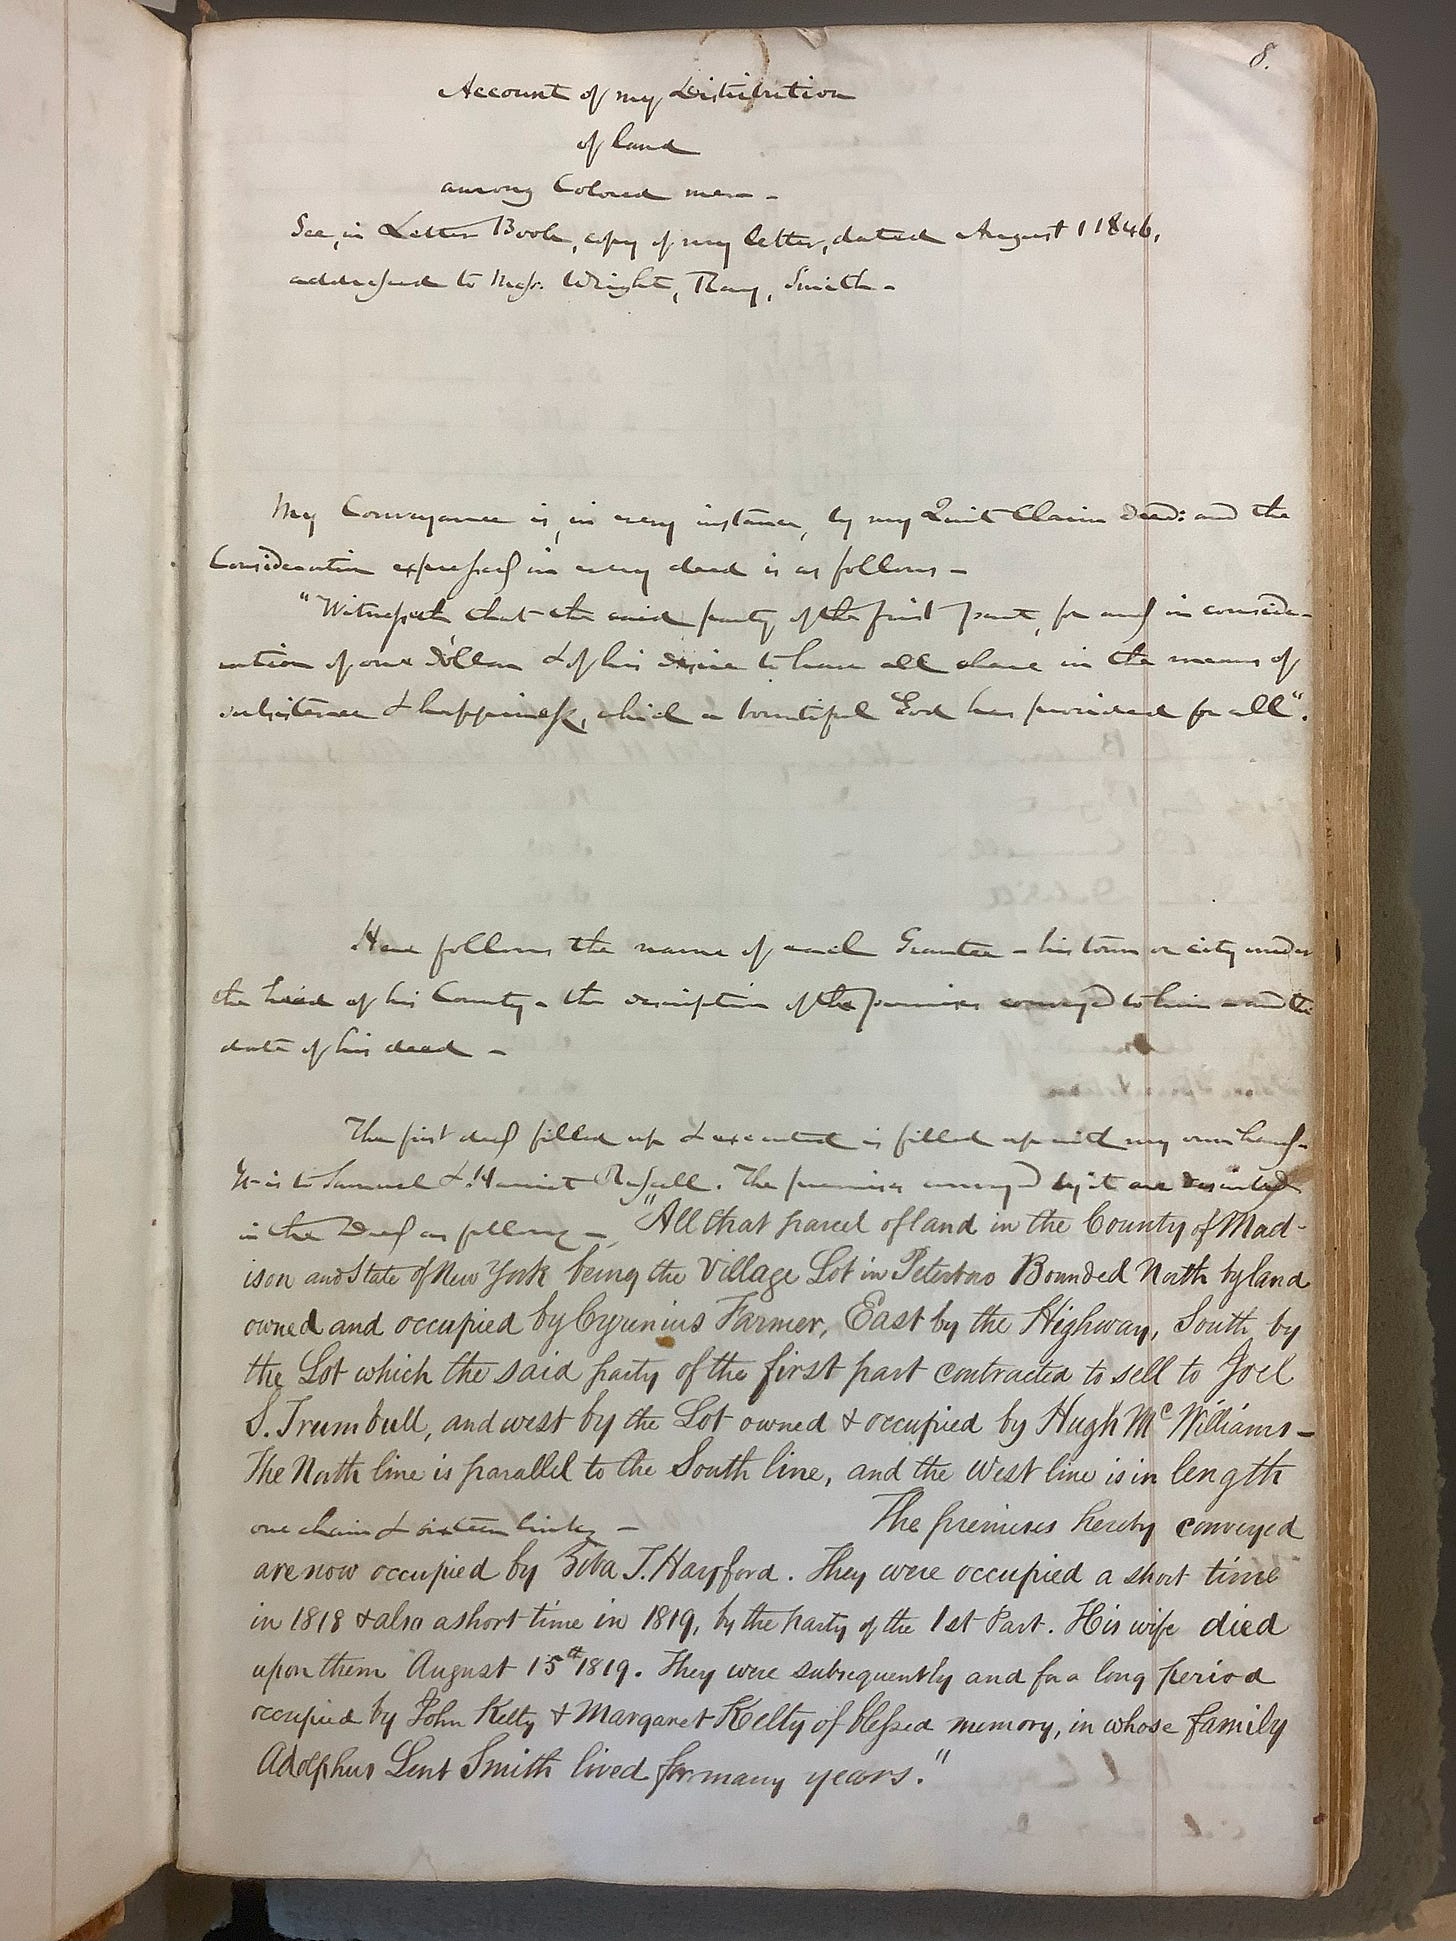 8.
Account of my Distribution
of land
among Colored men -
See, in Letter Book, copy of my letter, dated August 1 1846,
addressed to Messr. Wright, Ray, Smith -
My Conveyance is, in every instance, by my Quit Claim Deed: and the
Consideration expressed in every deed is as follows -
"Witnesseth that the said party of the first part, for and in conside-
ration of one Dollar & of his desire to have all share in the means of
subsistence & happiness, which a bountiful God has provided for all".
Here follows the name of each Grantee - his town or city under
the head of his County - the description of the premises conveyed to him - and the
date of his deed -
The first deed filled up & executed is filled up with my own hand -
It is to Samuel & Harriet Russell. The premises conveyed by it are described
in the Deed as follows - "All that parcel of land in the County of Mad-
ison and State of New York being the Village Lot in Peterboro Bounded North by land
owned and occupied by Cyrenius Farmer, East by the Highway, South by
the Lot which the said party of the first part contracted to sell to Joel
S. Trumbull, and west by the Lot owned & occupied by Hugh Mc Williams -
The North line is parallel to the South line, and the West line is in length
one chain & sixteen links - The premises hereby conveyed
are now occupied by Ziba T. Hayford. They were occupied a short time
in 1818 & also a short time in 1819, by the party of the 1st Part. His wife died
upon them August 15th 1819. They were subsequently and for a long period
occupied by John Kelty & Margaret Kelty of blessed memory, in whose family
Adolphus Lent Smith lived for many years."